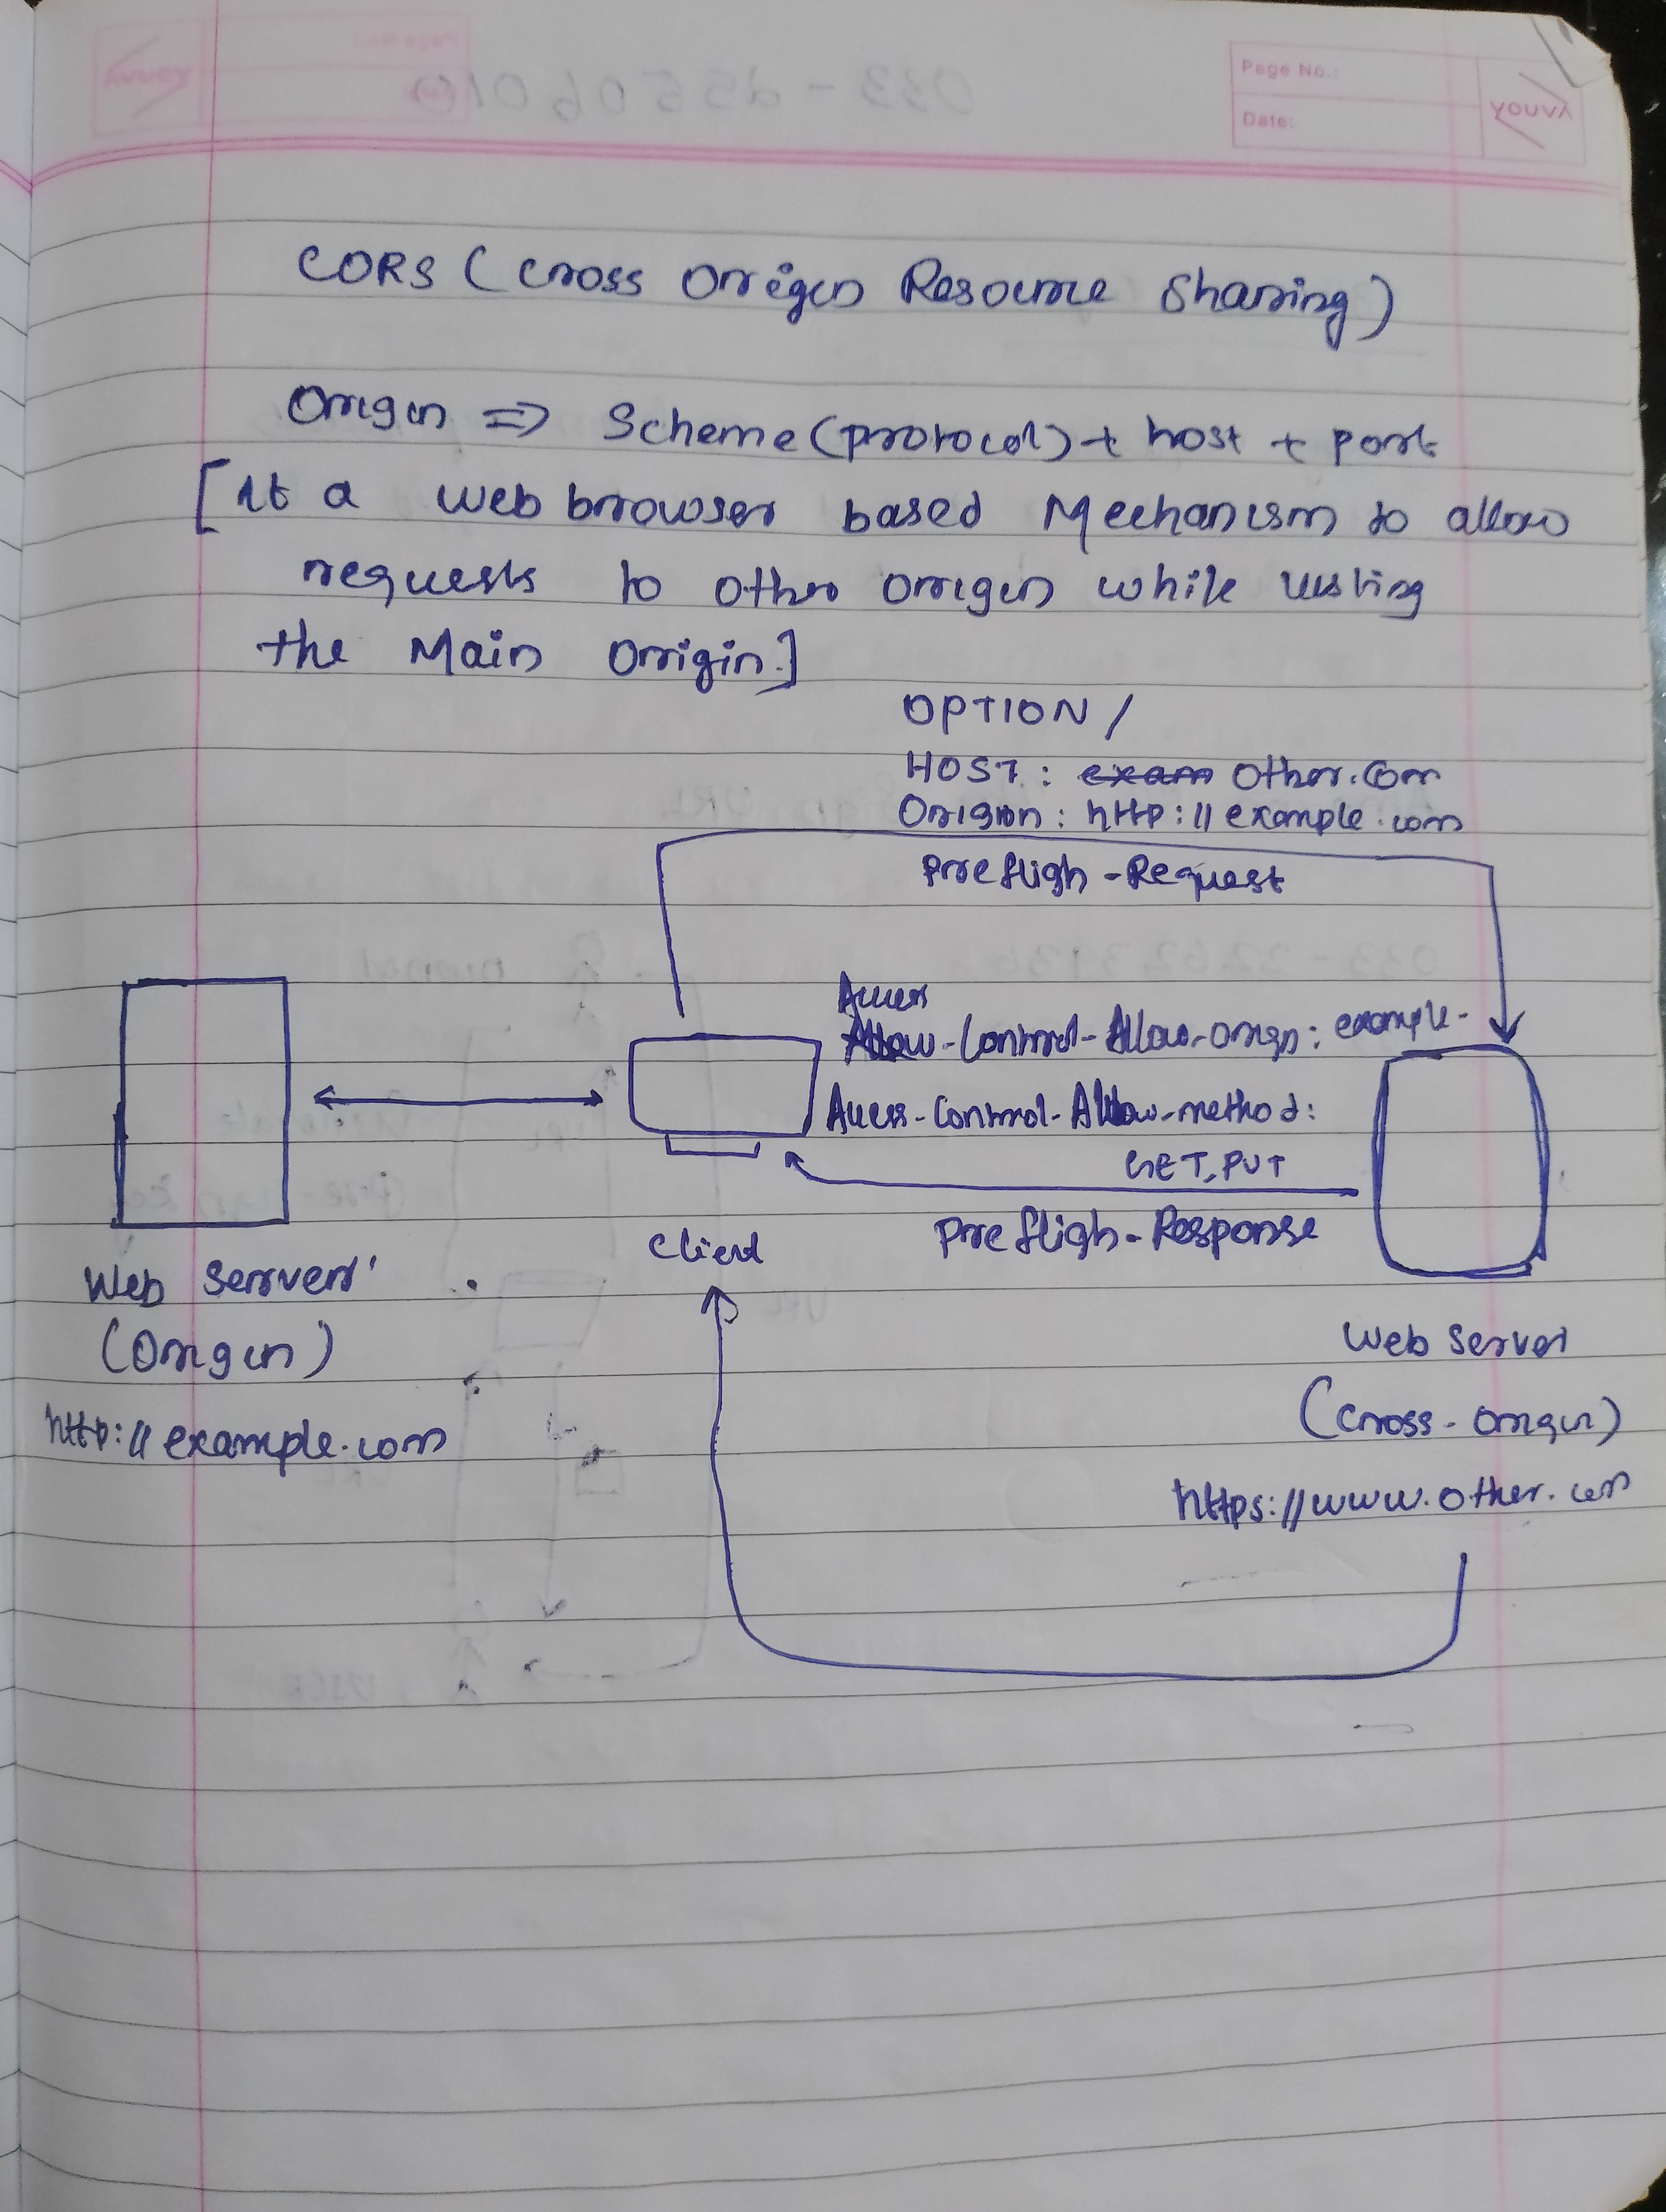 Page No.:
Date:
YOUVA
CORS (Cross Origin Resource Sharing)
Origin => Scheme(protocol) + host + port
[It a web browser based Mechanism to allow
requests to other origin while visiting
the Main Origin.]
OPTION /
HOST : exam other.com
Origion : http://example.com
Prefligh-Request
Access
Allow-Control-Allow-origin: example-
Access-Control-Allow-method:
GET, PUT
Prefligh-Response
Client
Web Server
(Origin)
http://example.com
Web Server
(Cross-origin)
https://www.other.com